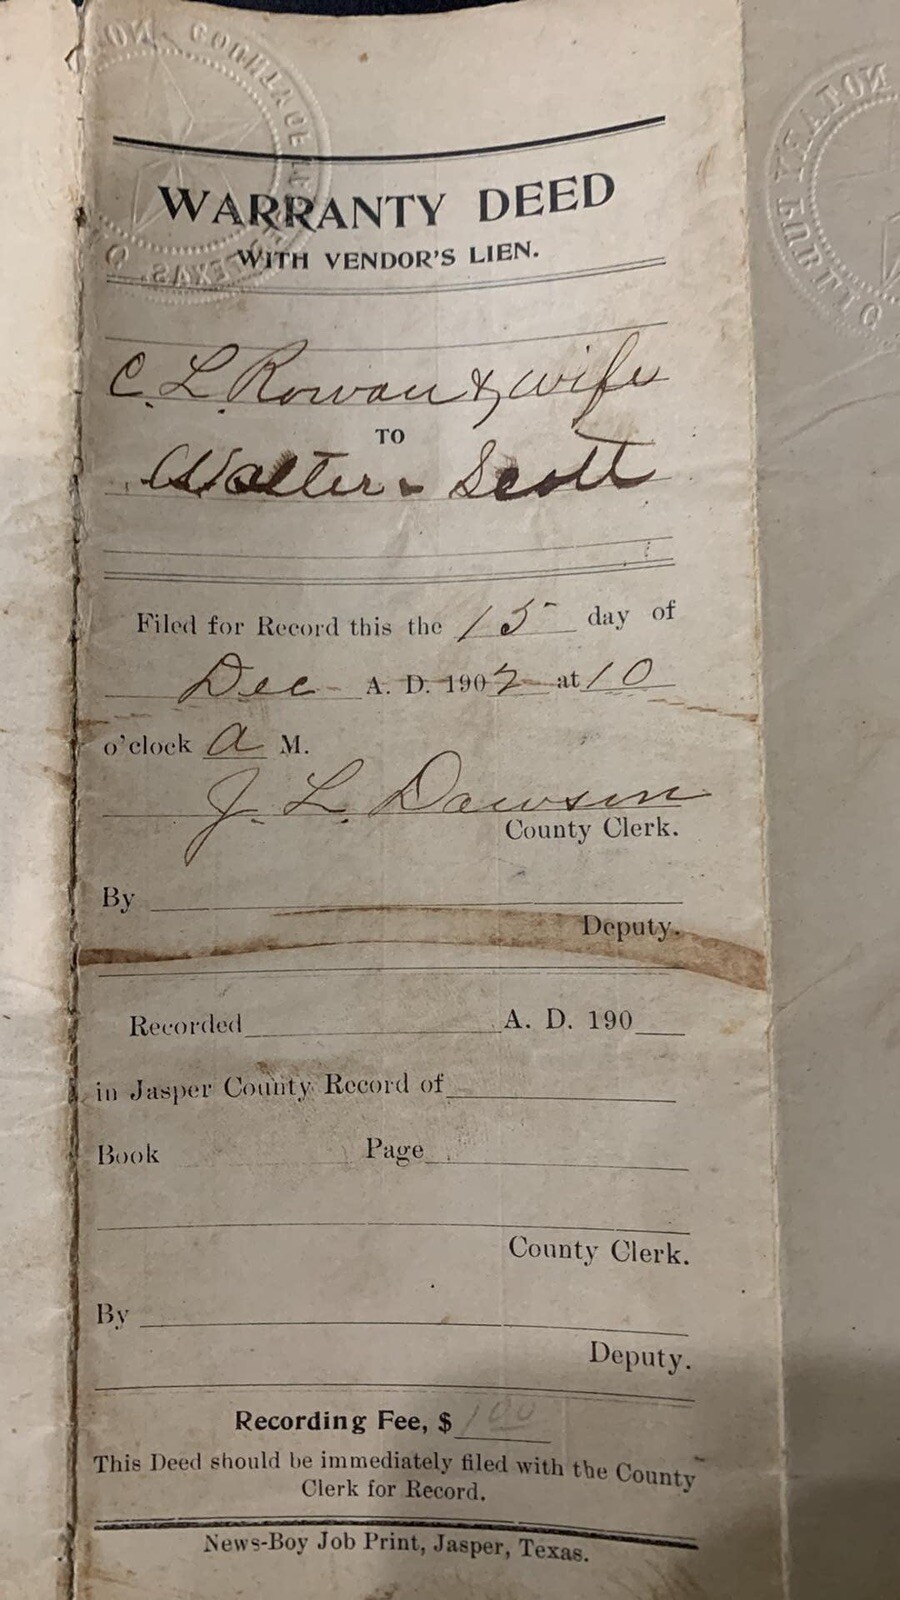 WARRANTY DEED
WITH VENDOR'S LIEN.
C. L. Rowan & wife
TO
Walter Scott
Filed for Record this the 15 day of
Dec A. D. 1902 at 10
o'clock a M.
J. L. Dawson
County Clerk.
By
Deputy.
Recorded A. D. 190
in Jasper County Record of
Book Page
County Clerk.
By
Deputy.
Recording Fee, $ 100
This Deed should be immediately filed with the County
Clerk for Record.
News-Boy Job Print, Jasper, Texas.
NOTARY PUBLIC
TEXAS.